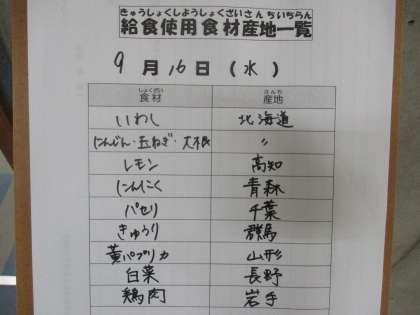 きゅうしょくしようしょくざいさんちいちらん
給食使用食材産地一覧
9月16日(水)
しょくざい さんち
食材 産地
いわし 北海道
にんじん・玉ねぎ・大根 〃
レモン 高知
にんにく 青森
パセリ 千葉
きゅうり 群馬
黄パプリカ 山形
白菜 長野
鶏肉 岩手